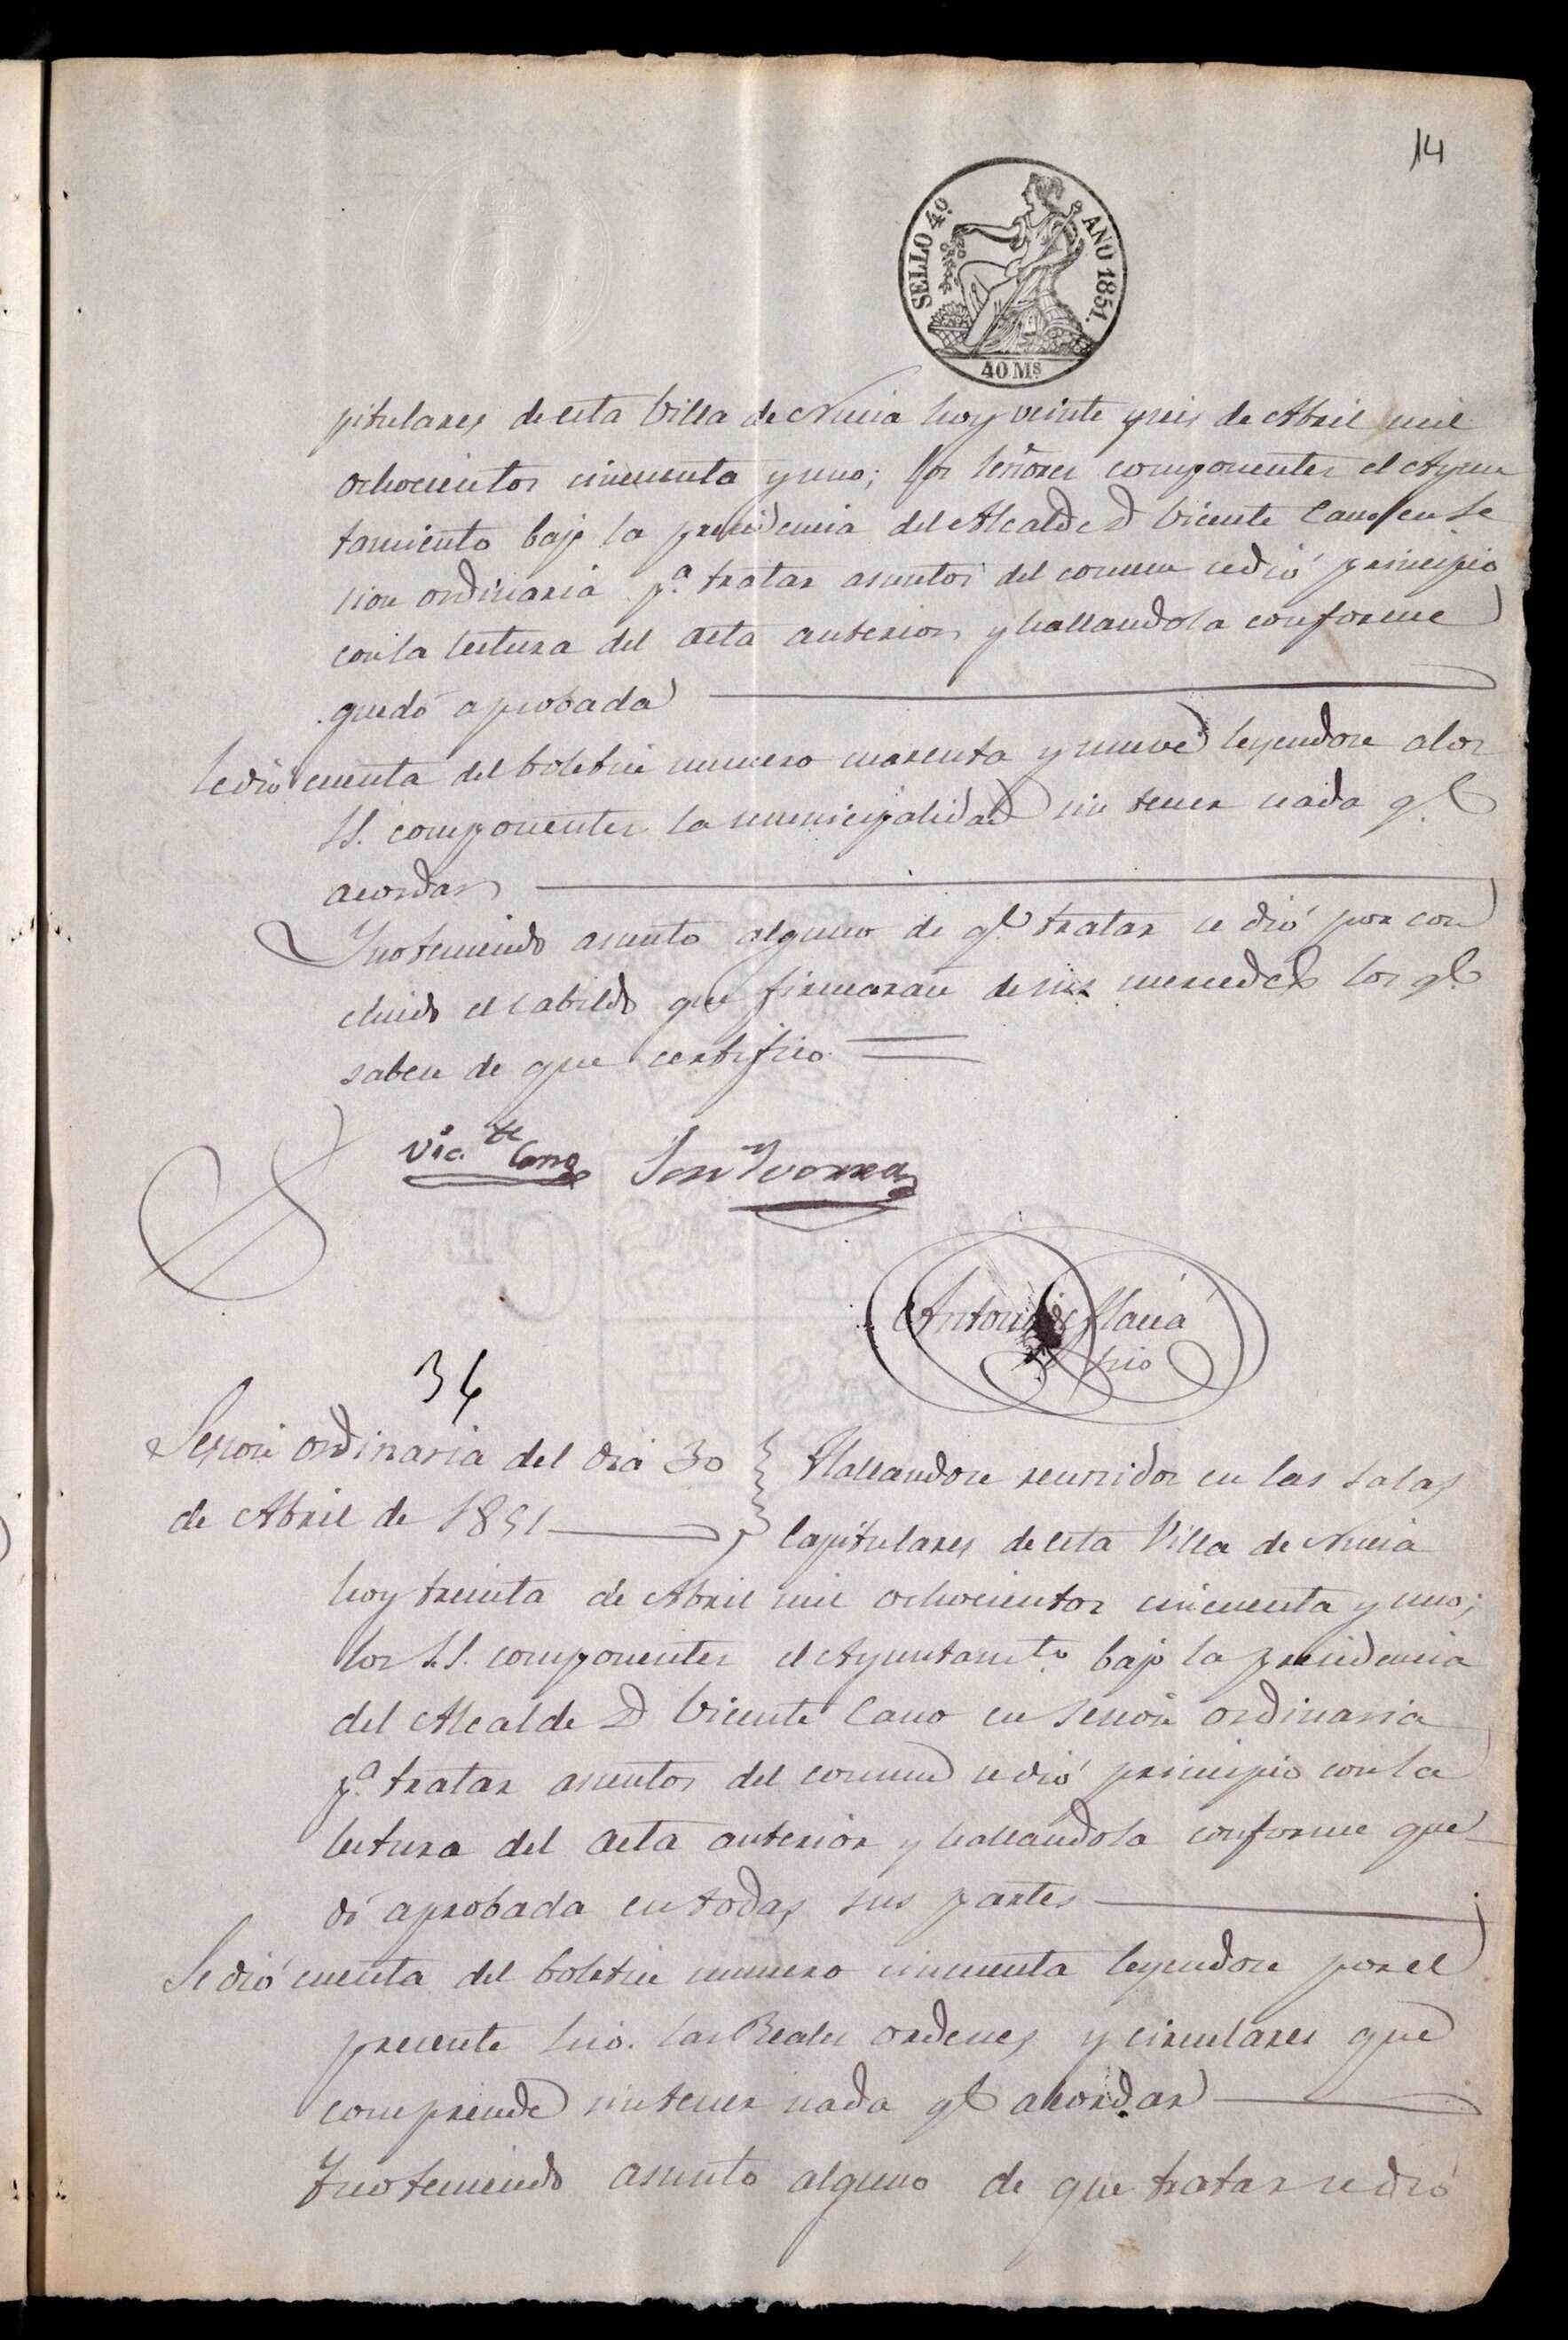 14
SELLO 4º. AÑO 1851.
40 Ms
pitulares de esta Villa de Nucia hoy veinte y seis de Abril mil
ochocientos cincuenta y uno; los Señores componentes el Ayun
tamiento bajo la presidencia del Alcalde D Vicente Cano en Se
sion ordinaria pª. tratar asuntos del comun se dió principio
con la lectura del acta anterior y hallandola conforme
quedó aprobada
Se dió cuenta del boletin numero cuarenta y nueve leyendose a los
SS. componentes la municipalidad sin tener nada q.e
acordar
Y no teniendo asunto alguno de q.e tratar se dió por con
cluido el cabildo que firmaran de sus mercedes los q.e
saben de que certifico
Vic.te Cano
Ivorra
Antonio
Srio
34
Sesion ordinaria del dia 30
de Abril de 1851
Hallandose reunidos en las Salas
Capitulares de esta Villa de Nucia
hoy treinta de Abril mil ochocientos cincuenta y uno;
los S.S. componentes el Ayuntam.to bajo la presidencia
del Alcalde D Vicente Cano en Sesion ordinaria
pª. tratar asuntos del comun se dió principio con la
lectura del acta anterior y hallandola conforme que
dó aprobada en todas sus partes
Se dió cuenta del boletin numero cincuenta leyendose por el
presente Srio. las Reales ordenes y circulares que
comprende sin tener nada q.e acordar
Y no teniendo asunto alguno de que tratar se dió